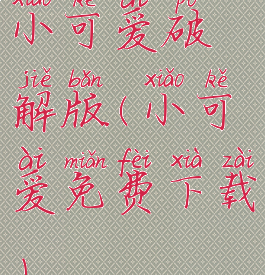 xiǎo kě ài pò
小可爱破
jiě bǎn xiǎo kě
解版(小可
ài miǎn fèi xià zài
爱免费下载
)